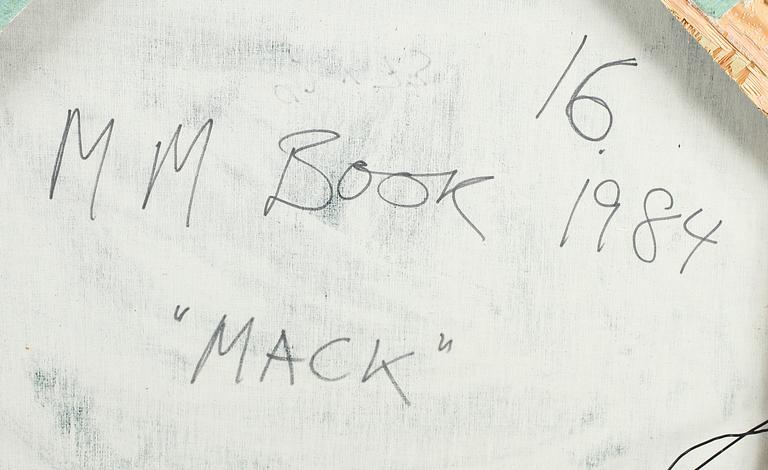 16.
MM BOOK 1984
"MACK"